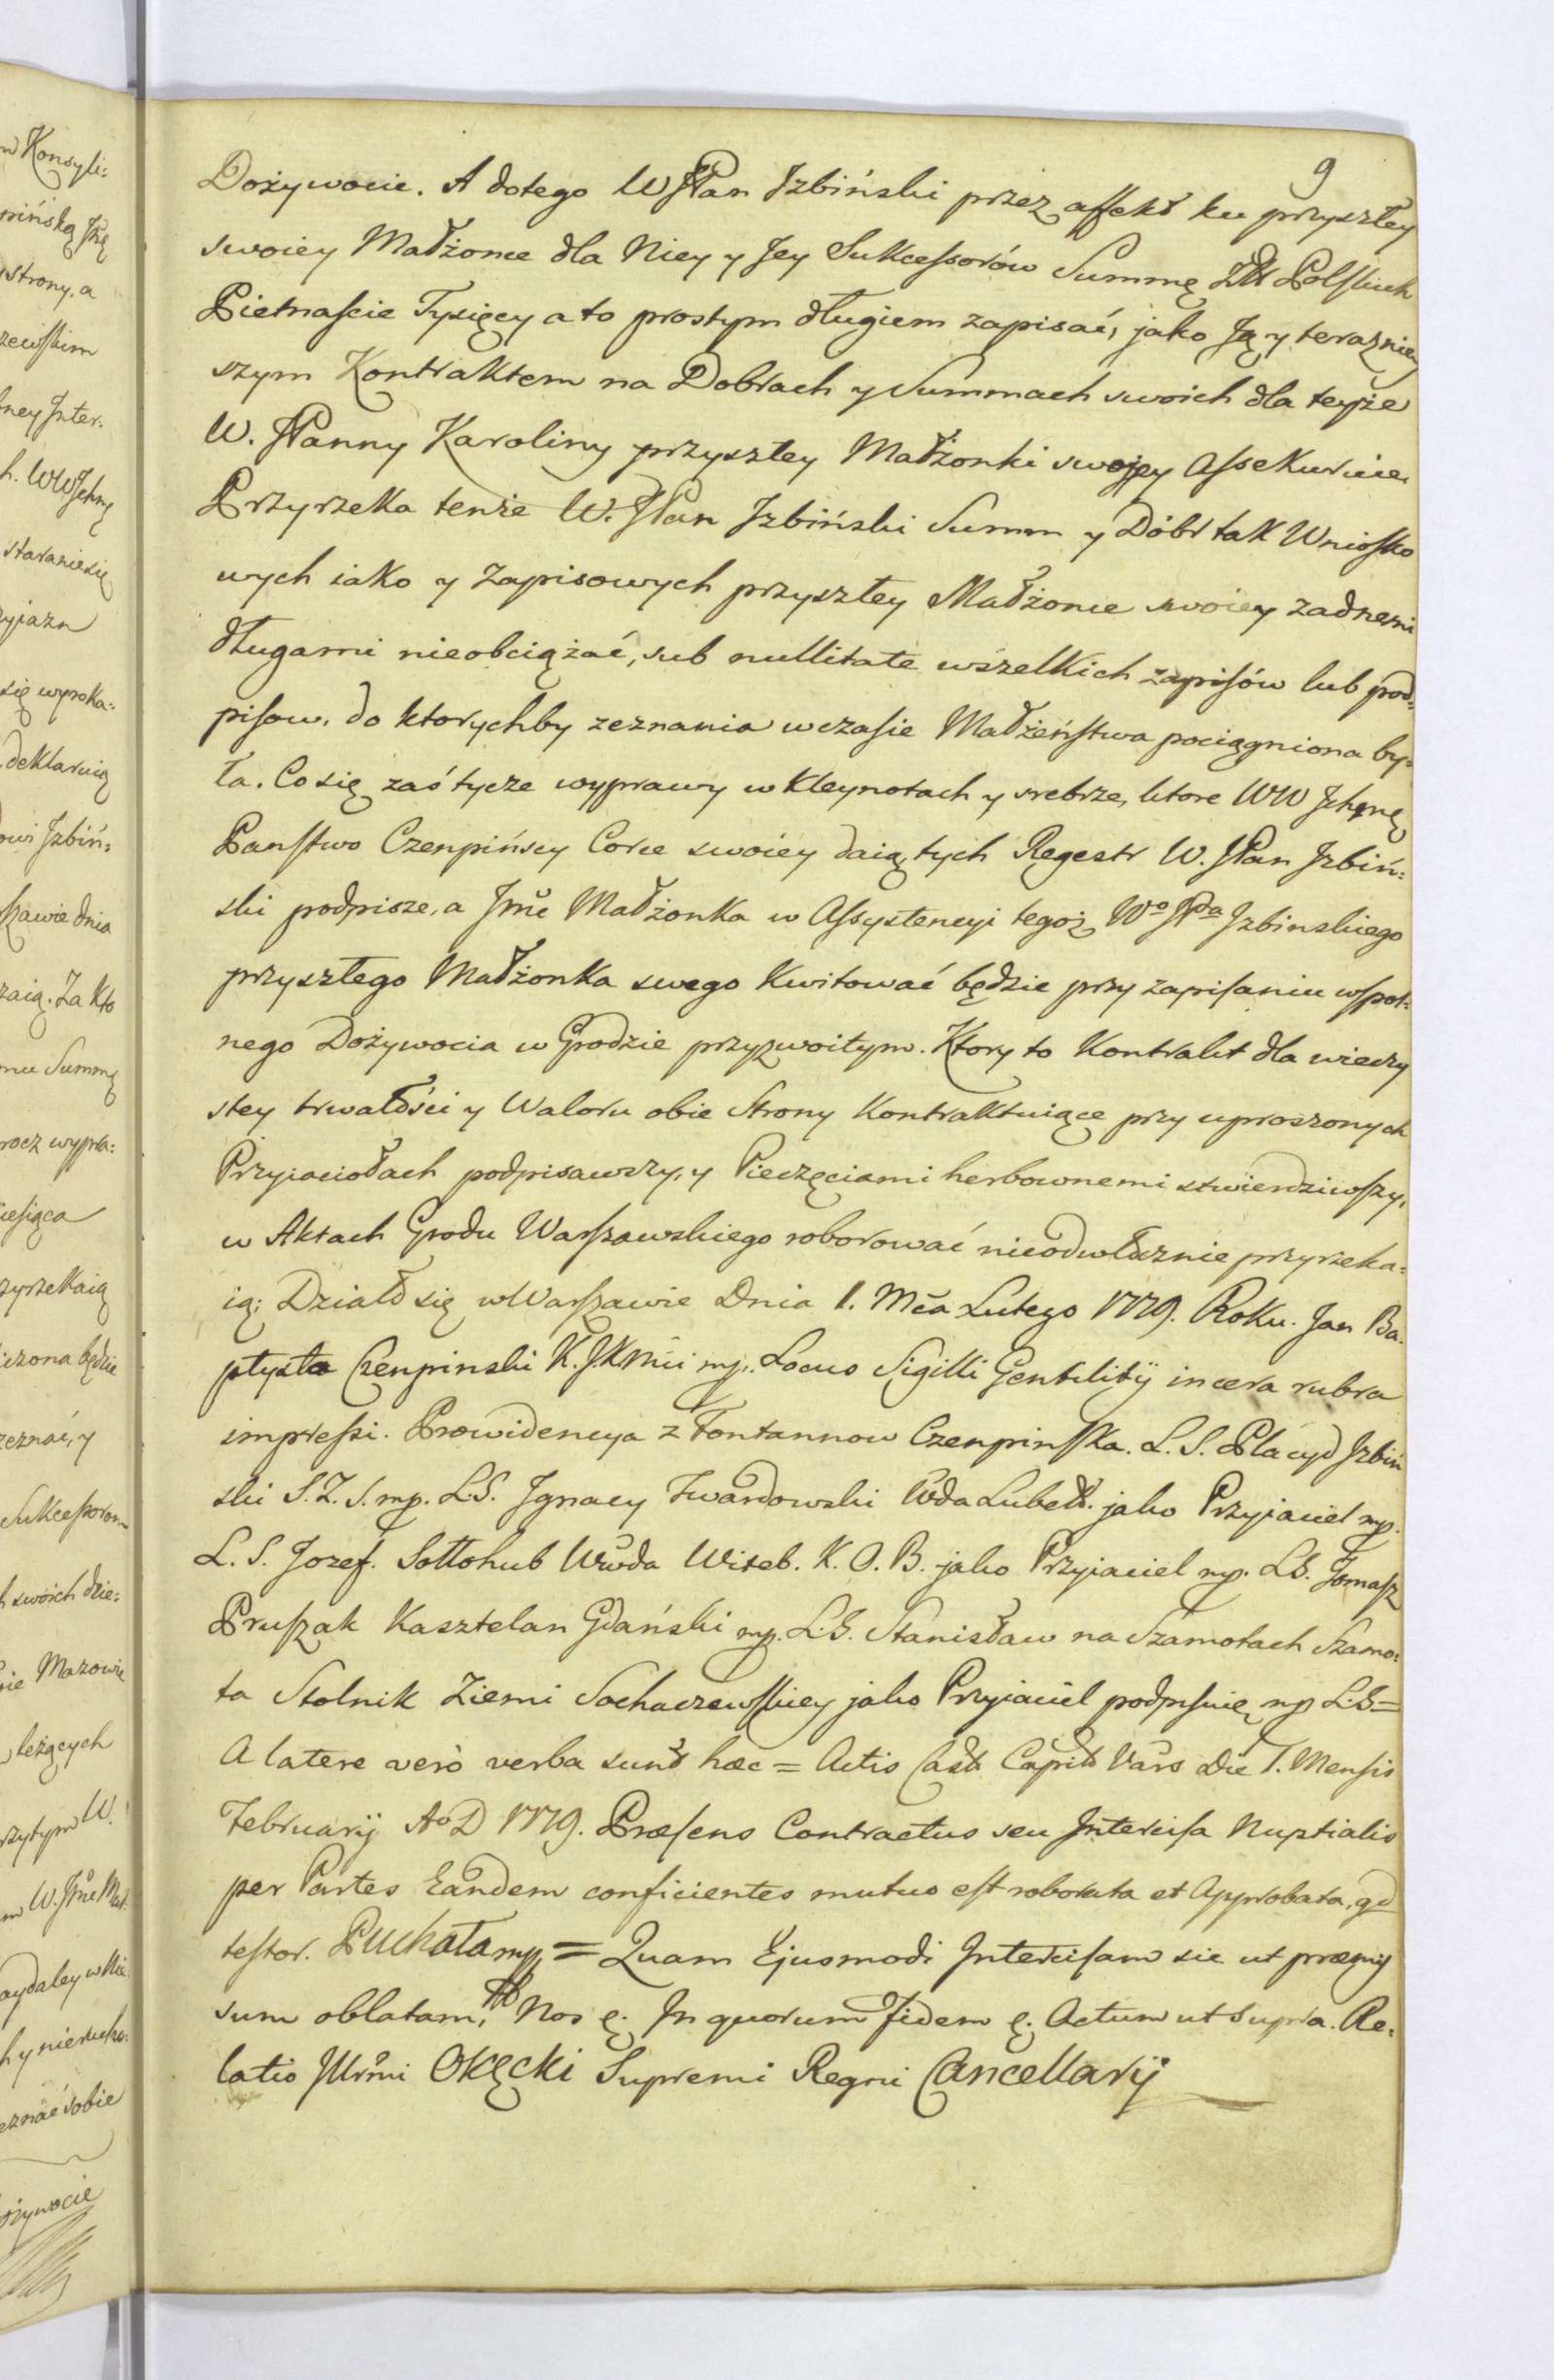 9
Dożywocie. A dotego WJPan Jzbiński przez affekt ku przyszłey
swoiey Małżonce dla Niey y Jey Sukcessorów Summę Złł Polskich
Pietnaście Tysięcy a to prostym długiem zapisać, jako Ją y teraźniey
szym Kontraktem na Dobrach y Summach swoich dla teyże
W. JPanny Karoliny przyszłey Małżonki swojey Assekuruie.
Przyrzeka tenże W. JPan Jzbiński Summ y Dóbr tak Wniosko
wych iako y Zapisowych przyszłey Małżonce swoiey żadnemi
długami nieobciążać, sub nullitate wszelkich zapisów lub pod:
pisow, do ktorychby zeznania wczasie Małżeństwa pociągniona by:
ła. Co się zaś tycze wyprawy w Kleynotach y srebrze, ktore WW Jchmę
Panstwo Czenpińscy Corce swoiey daią tych Regestr W. JPan Jzbiń:
ski podpisze, a Jmć Małżonka w Assystencyi tegoż Wo JPda Jzbinskiego
przyszłego Małżonka swego Kwitować będzie przy zapisaniu wspol:
nego Dożywocia w Grodzie przyzwoitym. Ktory to Kontrakt dla wieczy
stey trwałości y Waloru obie Strony Kontraktuiące przy uproszonych
Przyiaciołach podpisawszy, y Pieczęciami herbownemi stwierdziwszy,
w Aktach Grodu Warszawskiego roborować nieodwłucznie przyrzeka:
ią; Działo się w Warszawie Dnia 1. Mca Lutego 1779. Roku. Jan Ba:
ptysta Czenpinski K. JKMci mp. Locus Sigilli Gentilitij in cera rubra
impressi. Prowidencya z Fontannow Czenpinska. L. S. Placyd Jzbiń
ski S. Z. S. mp. L.S. Jgnacy Twardowski Wda Lubelt. jako Przyiaciel mp.
L. S. Jozef. Sołłohub Wwda Witeb. K. O. B. jako Przyiaciel mp. LS. Tomasz
Pruszak Kasztelan Gdański mp. L.S. Stanisław na Szamotach Szamo:
ta Stolnik Ziemi Sochaczewskiey jako Przyiaciel podpisuię mp L.S=
A latere verò verba sunt hæc = Actis Castr Capitl Vars Die 1. Mensis
Februarij Ao D 1779. Præsens Contractus seu Jntercisa Nuptialis
per Partes Eandem conficientes mutuo est roborata et Approbata, qd
testor. Puchała mp = Quam Ejusmodi Jntercisam sic ut præmis
sum oblatam, Nos &. Jn quorum fidem &. Actum ut supra. Re:
latio Jllrmi Okęcki Supremi Regni Cancellarij